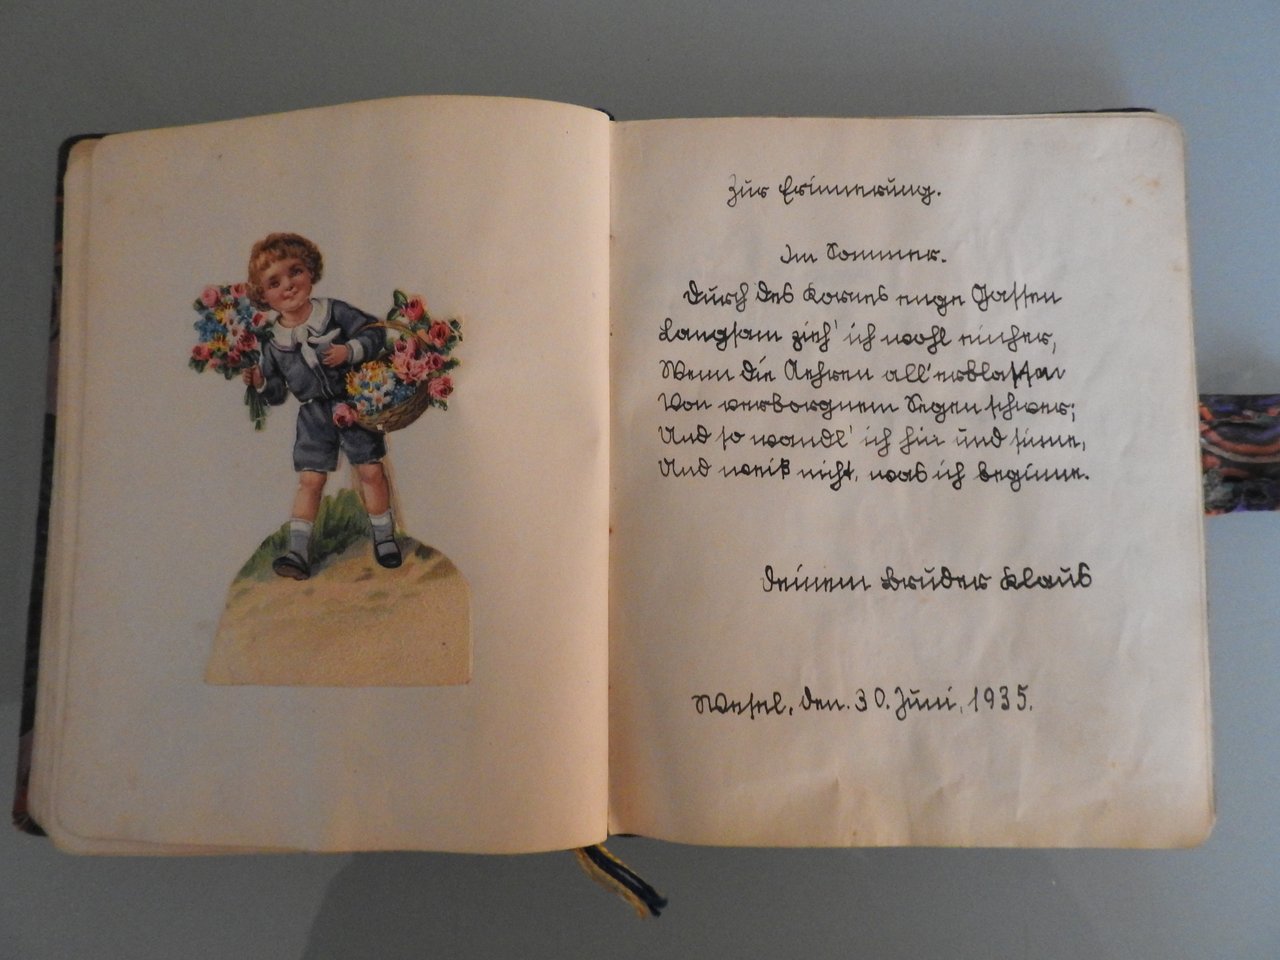 Zur Erinnerung.
Im Sommer.
Durch des Kornes enge Gassen
Langsam zieh' ich wohl einher,
Wenn die Aehren all' erblassen
Von verborgnem Segen schwer;
Und so wandl' ich hin und sinne,
Und weiß nicht, was ich beginne.
Deinem Bruder Klaus
Wesel, den. 30. Juni, 1935.